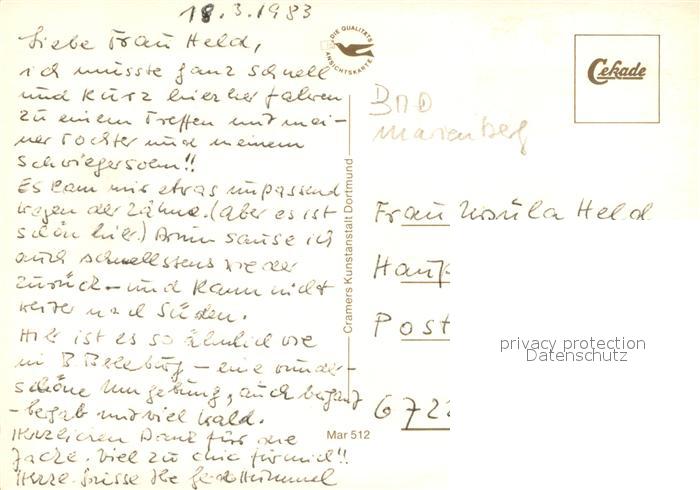 18.3.1983
Liebe Frau Held,
ich musste ganz schnell
und kurz hierher fahren
zu einem Treffen mit mei-
ner Tochter und meinem
Schwiegersohn!!
Es kam mir etwas unpassend
wegen der Zähne. (Aber es ist
schön hier.) Drum sause ich
auch schnellstens wieder
zurück - und kann nicht
weiter nach Süden.
Hier ist es so ähnlich wie
in B. Berleburg - eine wunder-
schöne Umgebung, auch bergauf
- bergab und viel Wald.
Herzlichen Dank für die
Jacke. Viel zu chic für mich!!
Herzl. Grüsse Ihre Himmel
DIE QUALITÄTS
ANSICHTSKARTE
Cramers Kunstanstalt Dortmund
Mar 512
Cekade
BMD
Marienberg
Frau Ursula Held
Haup
Post
672
privacy protection
Datenschutz